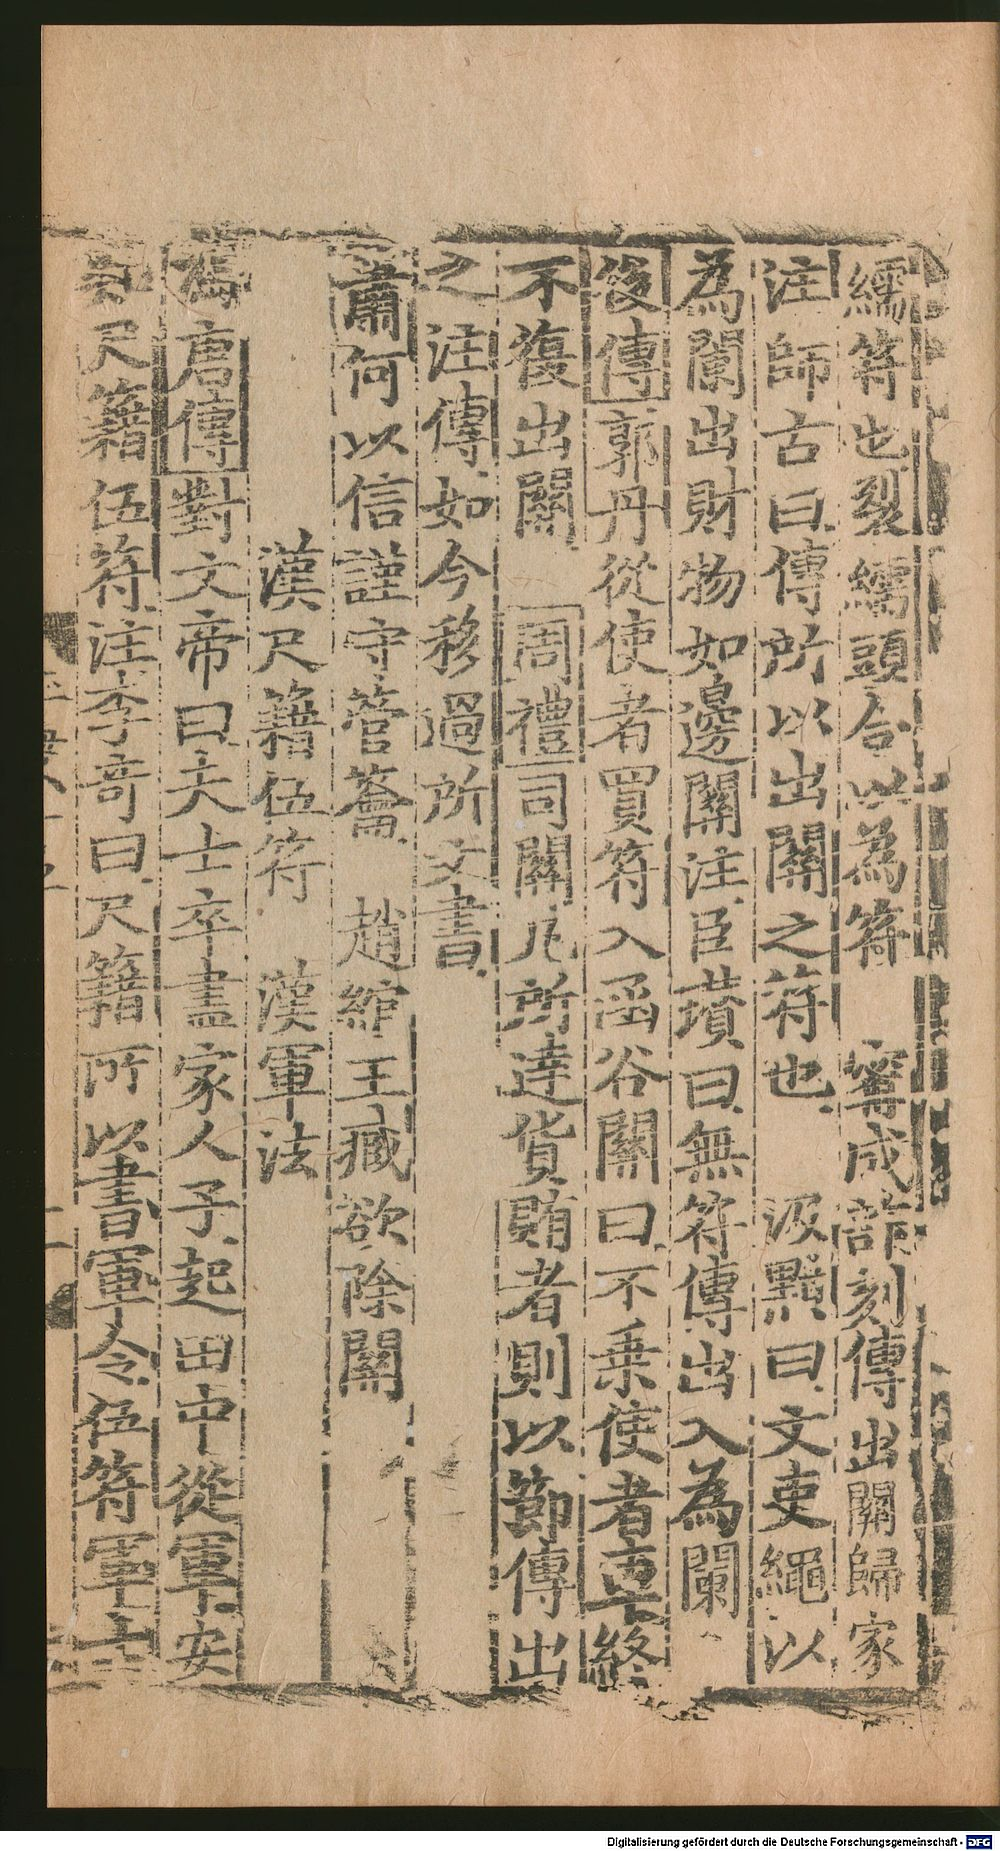 繻符也裂繻頭合以為符　甯成詐刻傳出關歸家
注師古曰傳所以出關之符也　汲黯曰文吏繩以
為闌出財物如邊關注臣瓚曰無符傳出入為闌
後傳郭丹從使者買符入函谷關曰不乗使者車終
不復出關　周禮司關凡所逹貨賄者則以節傳出
之　注傳如今移過所文書
蕭何以信謹守管籥　趙綰王臧欲除關
漢尺籍伍符　漢軍法
馮唐傳對文帝曰夫士卒盡家人子起田中從軍安
知尺籍伍符注李竒曰尺籍所以書軍令伍符軍士
Digitalisierung gefördert durch die Deutsche Forschungsgemeinschaft - DFG